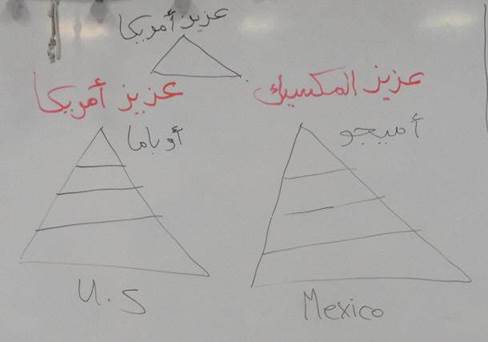 عزيز أمريكا
عزيز المكسيك
عزيز أمريكا
أميجو
أوباما
U.S
Mexico